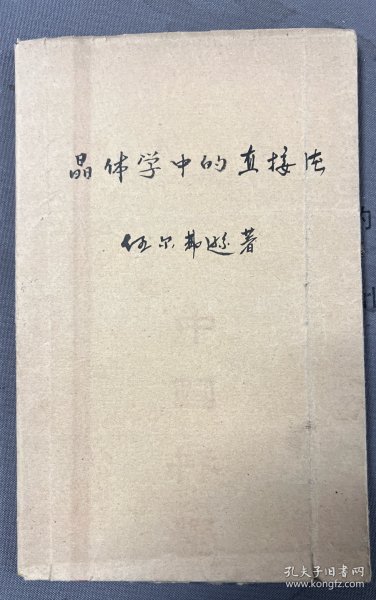 晶体学中的直接法
伍尔弗逊著
孔夫子旧书网
www.kongfz.com